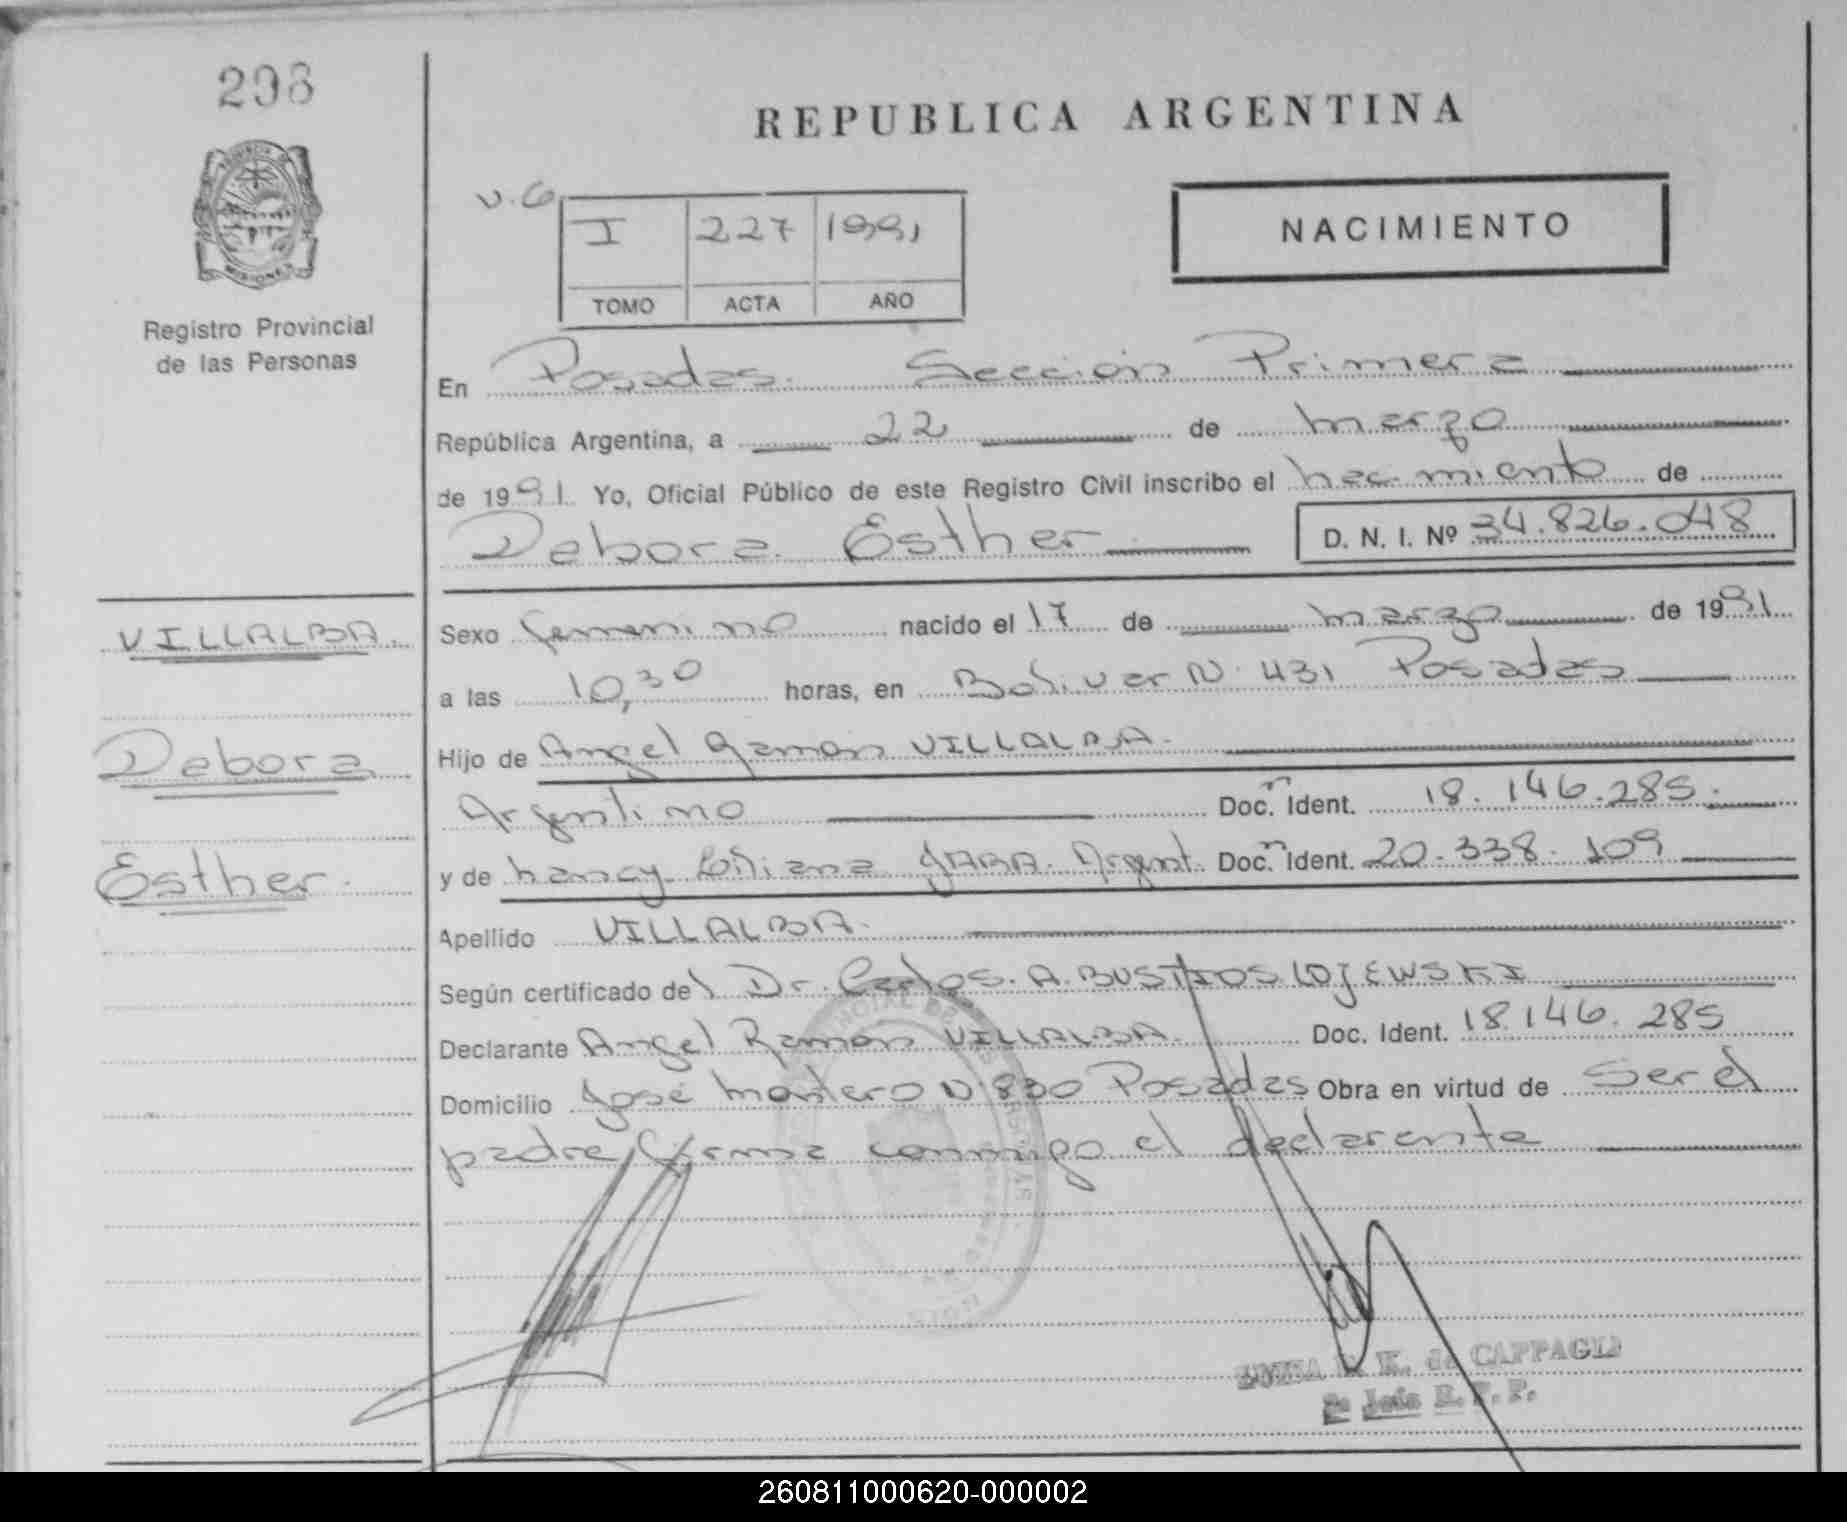 298
REPUBLICA ARGENTINA
PROVINCIA DE
MISIONES
Registro Provincial
de las Personas
I 227 1991
TOMO ACTA AÑO
NACIMIENTO
En Posadas. Sección Primera
República Argentina, a 22 de marzo
de 1991. Yo, Oficial Público de este Registro Civil inscribo el nacimiento de
Debora Esther D. N. I. Nº 34.826.048
VILLALBA.
Debora
Esther
Sexo femenino nacido el 17 de marzo de 1991
a las 10,30 horas, en Bolivar N. 431 Posadas
Hijo de Angel Ramon VILLALBA.
Argentino Doc. Ident. 18.146.285.
y de Nancy Liliana JARA. Argent. Doc. Ident. 20.338.109
Apellido VILLALBA.
Según certificado del Dr. Carlos. A. BUSTIOS LOJEWSKI
Declarante Angel Ramon VILLALBA. Doc. Ident. 18.146.285
Domicilio José N 830 Posadas Obra en virtud de Ser el
padre firma conmigo el declarante
de CAPPAGLI
260811000620-000002